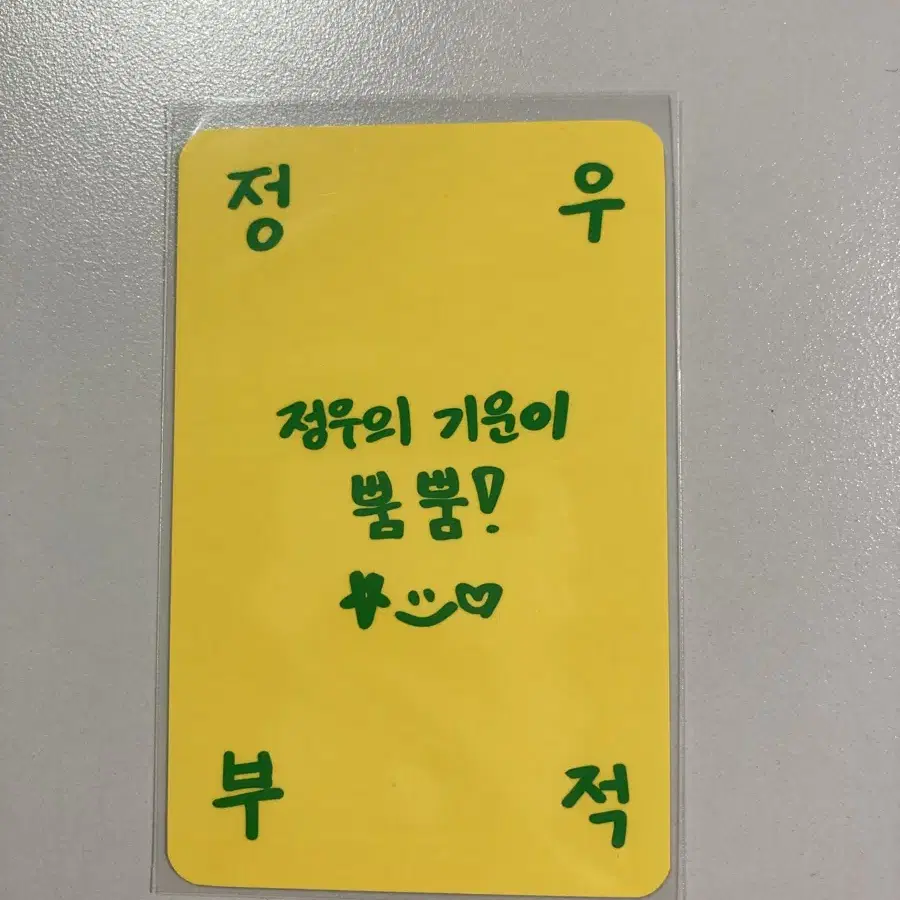 정 우
정우의 기운이
뿜뿜!
부 적